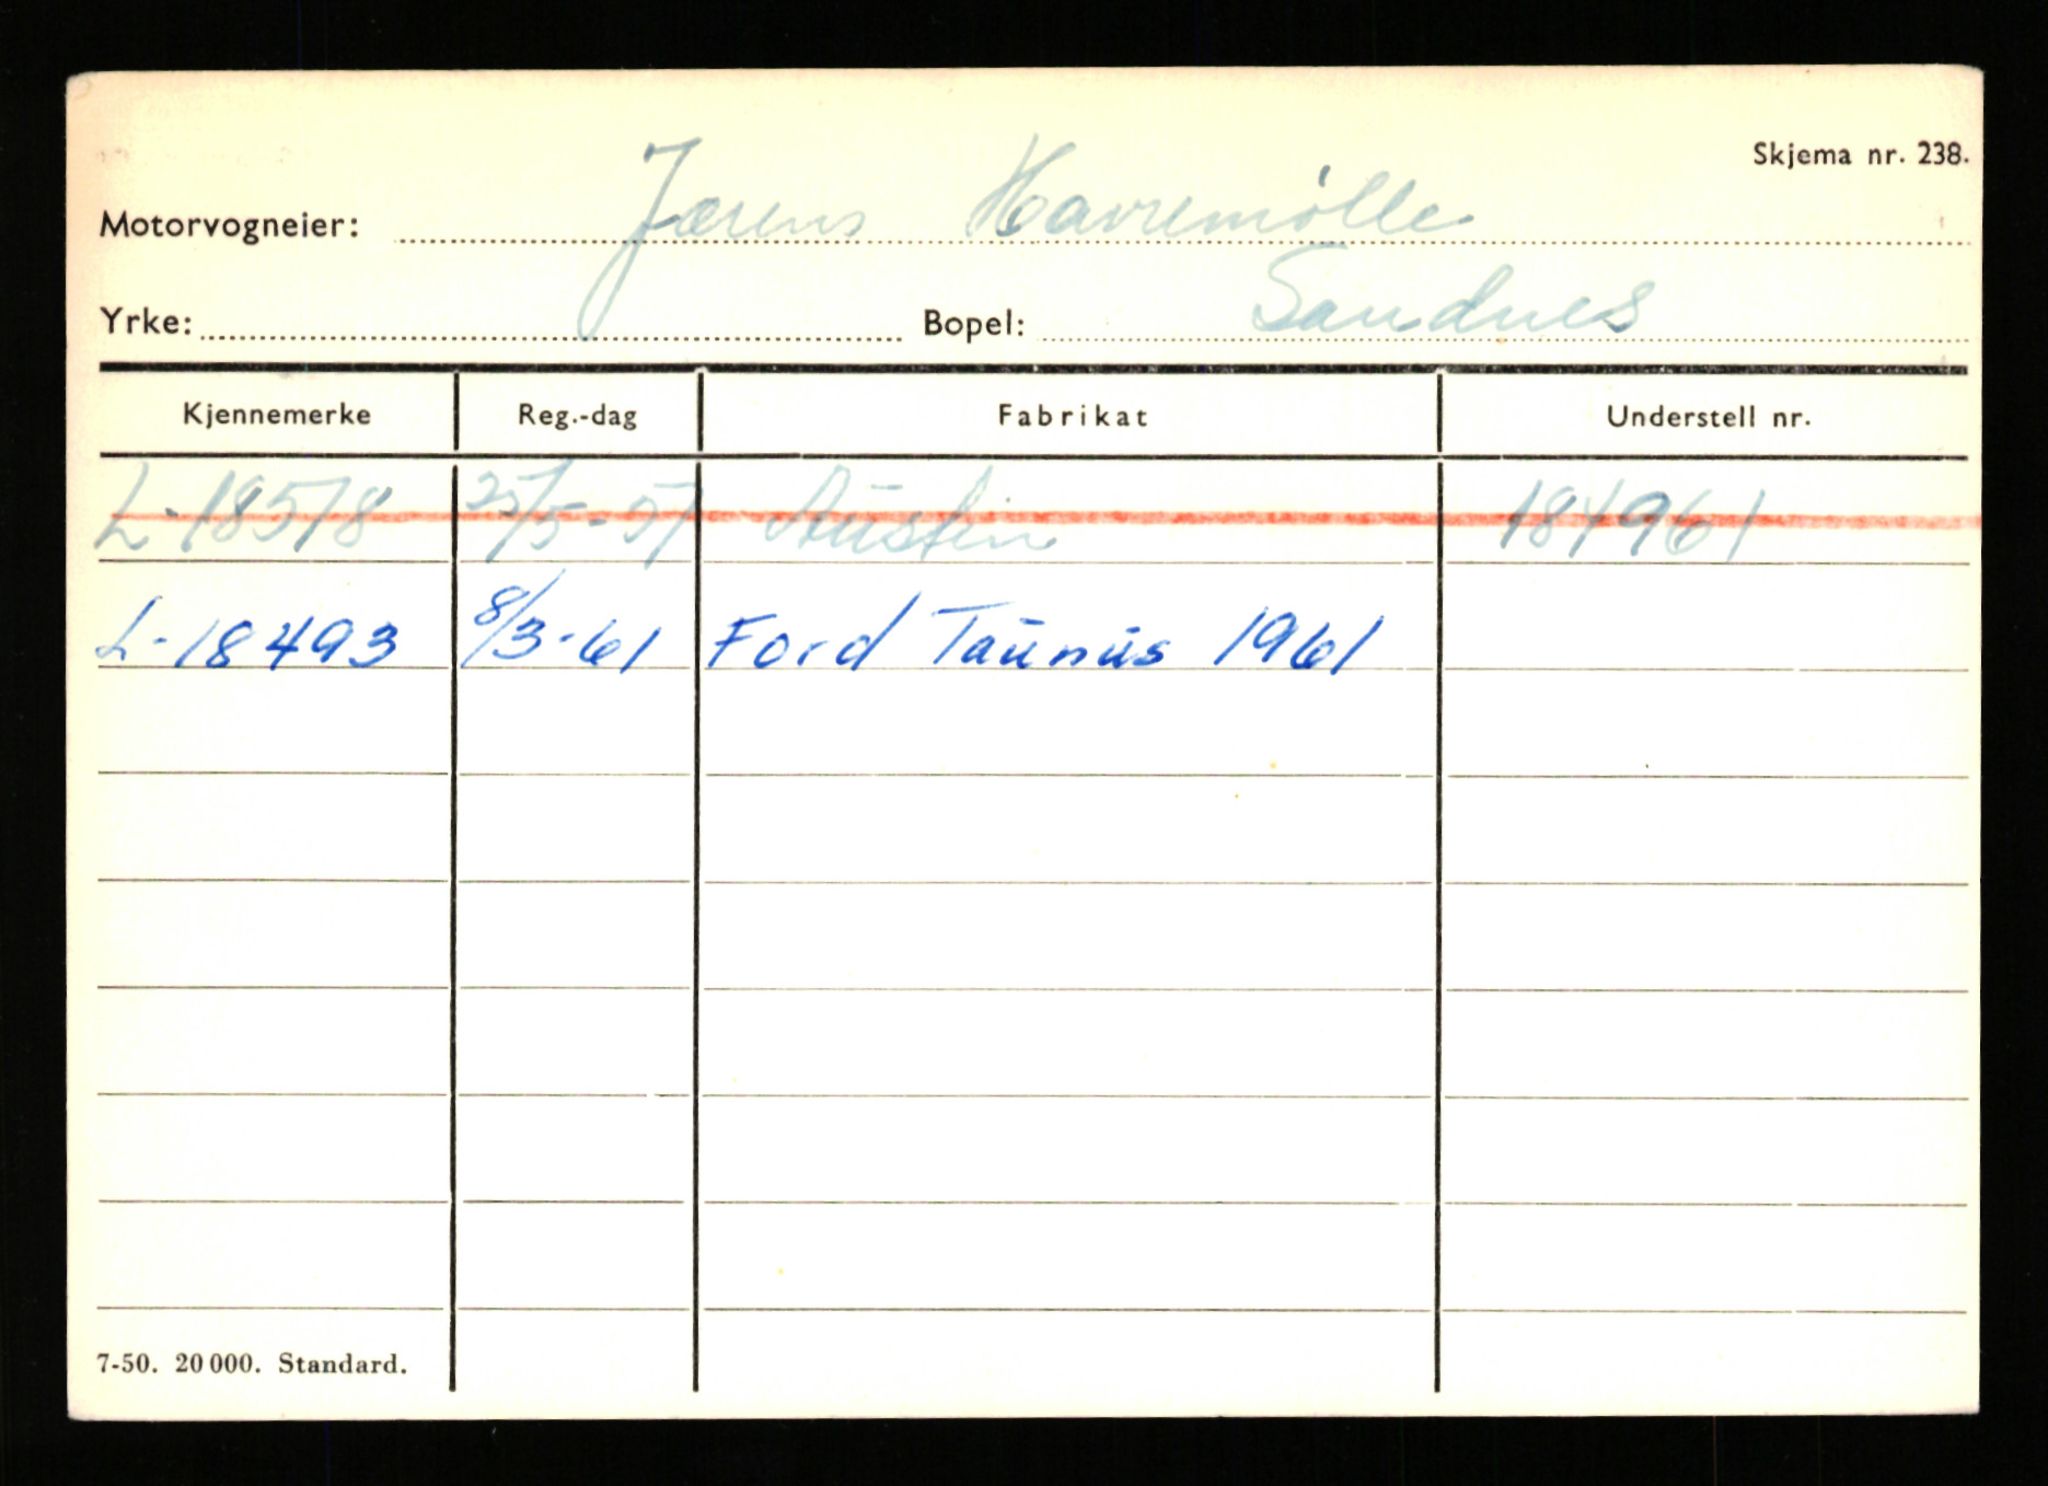 Skjema nr. 238.
Motorvogneier: Jærens Havremølle
Yrke: Bopel: Sandnes
Kjennemerke Reg.-dag Fabrikat Understell nr.
L-18518 25/5-57 Austin 184961
L-18493 8/3-61 Ford Taunus 1961
7-50. 20 000. Standard.